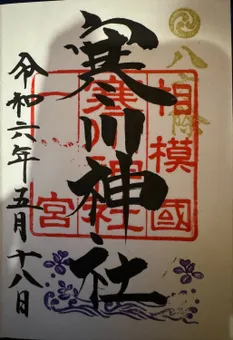 八
除
寒川神社
相模國
寒川神社
一宮
令和六年五月十八日